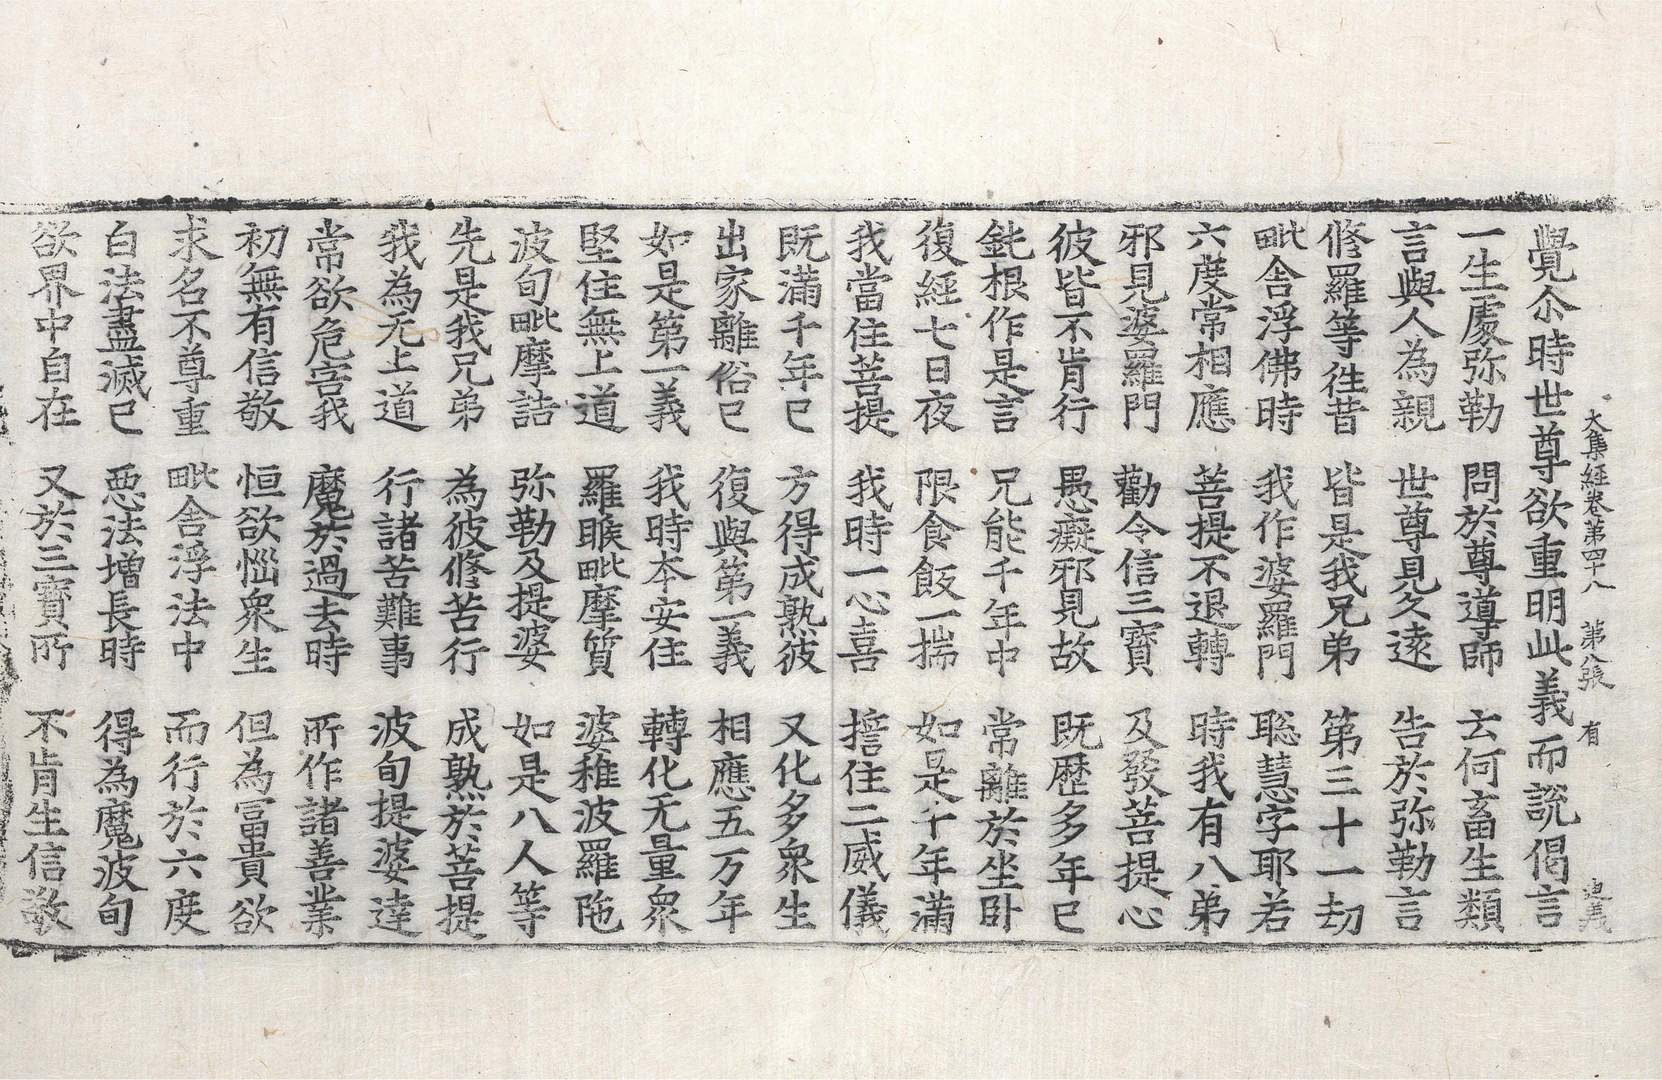 大集經卷第四十八　第八張　有　迪義
覺尒時世尊欲重明此義而說偈言
一生處弥勒　問於尊導師　云何畜生類
言與人為親　世尊見久遠　告於弥勒言
修羅等徃昔　皆是我兄弟　第三十一劫
毗舍浮佛時　我作婆羅門　聡慧字耶若
六度常相應　菩提不退轉　時我有八弟
邪見婆羅門　勸令信三寶　及發菩提心
彼皆不肯行　愚癡邪見故　既歷多年已
鈍根作是言　兄能千年中　常離於坐卧
復經七日夜　限食飯一揣　如是千年滿
我當住菩提　我時一心喜　擔住二威儀
既滿千年已　方得成熟彼　又化多衆生
出家離俗已　復與第一義　相應五万年
如是第一義　我時夲安住　轉化无量衆
堅住無上道　羅睺毗摩質　婆稚波羅陁
波旬毗摩詰　弥勒及提婆　如是八人等
先是我兄弟　為彼修苦行　成熟於菩提
我為无上道　行諸苦難事　波旬提婆達
常欲危害我　魔於過去時　所作諸善業
初無有信敬　恒欲惱衆生　但為冨貴欲
求名不尊重　毗舍浮法中　而行於六度
白法盡滅已　惡法增長時　得為魔波旬
欲界中自在　又於三寶所　不肯生信敬